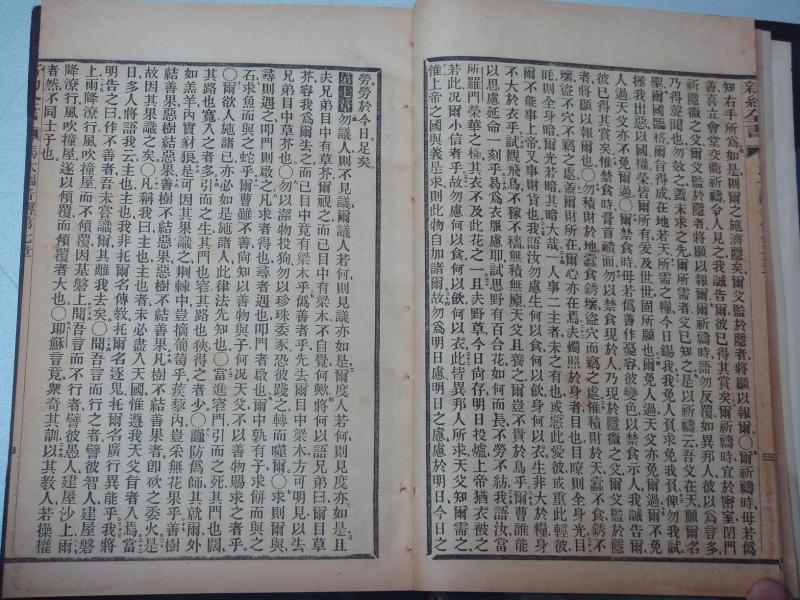 新約全書
知右手所爲如是則爾之施濟隱矣爾父監於隱者將顯以報爾○爾祈禱時毋若僞
善喜立會堂交衢祈禱令人見之我誠告爾彼已得其賞矣爾祈禱時宜於密室閉門
祈隱微之父爾父監於隱者將顯以報爾爾祈禱時語勿反覆如異邦人彼以爲言多
乃得聲聞也勿效之蓋未求之先爾所需者父已知之是以祈禱云吾父在天願爾名
聖爾國臨格爾旨得成在地若天所需之糧今日錫我我免人負求免我負俾勿我試
拯我出惡以國權榮皆爾所有爰及世世固所願也爾免人過天父亦免爾過爾不免
人過天父亦不免爾過○爾禁食時毋若僞善作憂容彼變色以禁食示人我誠告爾
彼已得其賞矣惟禁食時膏首靧面勿以禁食現於人乃現於隱微之父爾父監於隱
者將顯以報爾也○勿積財於地蠹食銹壞盜穴而竊之處惟積財於天蠹不食銹不
壞盜不穴不竊之處蓋爾財所在爾心亦在焉夫燭照於身者目也目瞭則全身光目
眊則全身暗爾光若暗其暗大哉一人事二主者未之有也或惡此愛彼或重此輕彼
爾不能事上帝又事財貨也我語汝勿慮生何以食何以飲身何以衣生非大於糧身
不大於衣乎試觀飛鳥不稼不穡無積無廩天父且養之爾豈不貴於鳥乎爾曹誰能
以思慮延命一刻乎曷爲衣服慮耶試思野有百合花如何而長不勞不紡我語汝當
所羅門榮華之極其衣不及此花之一且夫野草今日尚存明日投爐上帝猶衣被之
若此况爾小信者乎故勿慮何以食何以飲何以衣此皆異邦人所求天父知爾需之
惟上帝之國與義是求則此物自加諸爾故勿爲明日慮明日之慮於明日今日之
勞勞於今日足矣
第七章 勿議人則不見議爾議人若何則見議亦如是爾度人若何則見度亦如是且
夫兄弟目中有草芥爾視之而已目中有梁木不自覺何歟將何以語兄弟曰爾目草
芥容我爲爾去之而已目中竟有梁木乎僞善者乎先去爾目中梁木方可明見以去
兄弟目中草芥也○勿以潔物投狗勿以珍珠委豕恐彼踐之轉而噬爾○求則爾與
尋則遇叩門則啟之凡求者得也尋者遇也叩門者啟也爾中孰有子求餅而與之
石求魚而與之蛇乎爾曹雖不善尚知以善物與子何况天父不以善物賜求之者乎
○爾欲人施諸己亦必如是施諸人此律法先知也○當進窄門引而之死其門也闊
其路也寬入之者多引而之生其門也窄其路也狹得之者少○謹防僞師其就爾外
如羔羊內實豺狼是可因其果識之荊棘中豈摘葡萄乎蒺藜內豈采無花果乎善樹
結善果惡樹結惡果善樹不結惡果惡樹不結善果凡樹不結善果者即斫之委火是
故因其果識之矣○凡稱我曰主也主也者未必盡入天國惟遵我天父旨者入焉當
日多人將語我云主也主也我非托爾名傳教托爾名逐鬼托爾名廣行異能乎我將
明告之曰作不善者吾未嘗識爾其離我去矣○聞吾言而行之者譬彼智人建屋磐
上雨降潦行風吹撞屋而不傾覆因基磐上聞吾言而不行者譬彼愚人建屋沙上雨
降潦行風吹撞屋遂以傾覆而傾覆者大也○耶穌言竟衆奇其訓以其教人若操權
者然不同士子也